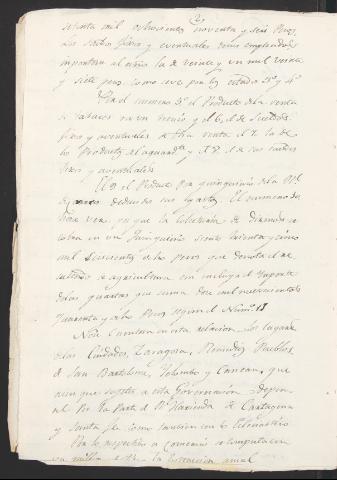 setenta mil ochocientos noventa y seis Pesos
Los sueldos fixos y eventuales de sus empleados
importan al año la de veinte y un mil veinte
y siete pesos como se ve por los estados 3º y 4º
Por el numero 5º el Producto de la venta
de tabacos en un trienio y el 6 el de sueldos
fixos y eventuales de dha venta el 7 la de
los Productos del aguardte y el 8 el de sus sueldos
fixos y eventuales
El 9 el Producto Por quinquenio de la Rl
deducidos sus gastos. El numero
hara ver, que la colectacion de Diezmos se
cobra en un quinquenio ciento treinta y cinco
mil seiscientos de los pesos que denota el
de agricultura con incluso el importe
de las quartas que suma dos mil novecientos
quarenta y ocho Pesos segun el Numº 11
No se cuentan en esta relacion los lugares
de las Ciudades, Zaragoza, Remedios Pueblos
de San Bartolomé, Yolombo y Cancan, que
aunque sugetos a esta Governacion depen
Por la Parte de Rl Hacienda de Cartagena
y Santa Fe como tambien en lo Eclesiastico
Por lo respectivo a comercio se computa en
un millon la extraccion anual